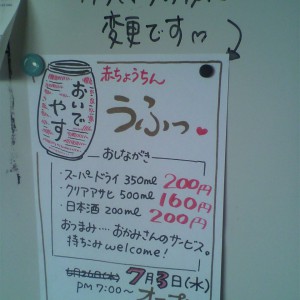 変更です♡
赤ちょうちん
おいでやす
うふっ
おしながき
・スーパードライ 350ml 200円
・クリアアサヒ 500ml 160円
・日本酒 200ml 200円
おつまみ‥‥おかみさんのサービス。
持ちこみ welcome!
7月3日(水)
pm 7:00～ オープン